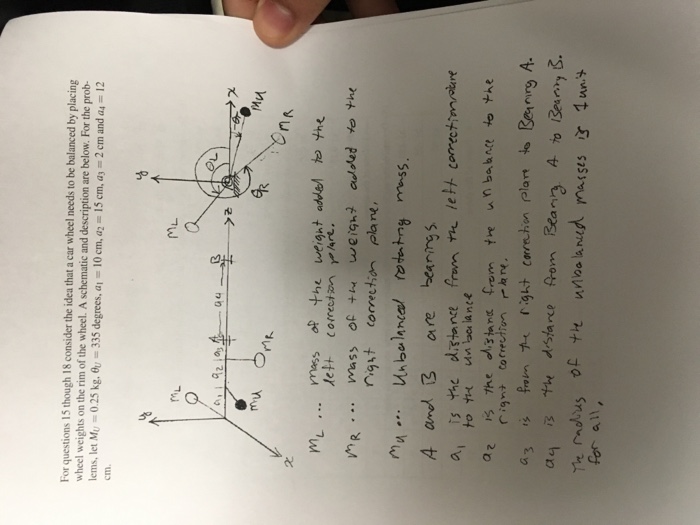 For questions 15 though 18 consider the idea that a car wheel needs to be balanced by placing
wheel weights on the rim of the wheel. A schematic and description are below. For the prob-
lems, let M_U = 0.25 kg. θ_U = 335 degrees, a₁ = 10 cm, a₂ = 15 cm, a₃ = 2 cm and a₄ = 12
cm.
y
mL
a₁ a₂ a₃ A a4 B
z
mU
mR
x
y
mL
θL
x
mU
θR
mR
mL ... mass of the weight added to the
left correction plane.
mR ... mass of the weight added to the
right correction plane.
mu ... Unbalanced rotating mass.
A and B are bearings.
a₁ is the distance from the left correction plane
to the unbalance
a₂ is the distance from the unbalance to the
right correction plane.
a₃ is from the right corretion plane to Bearing A.
a4 is the distance from Bearing A to Bearing B.
The radius of the unbalanced masses is 1 unit
for all.